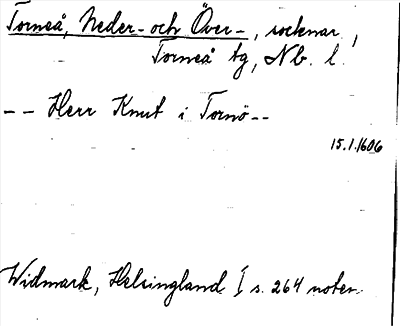 Torneå, Neder- och Över-, socknar,
Torneå tg, Nb. l.
-- Herr Knut i Tornö --
15.1.1606
Widmark, Helsingland I s. 264 noten.